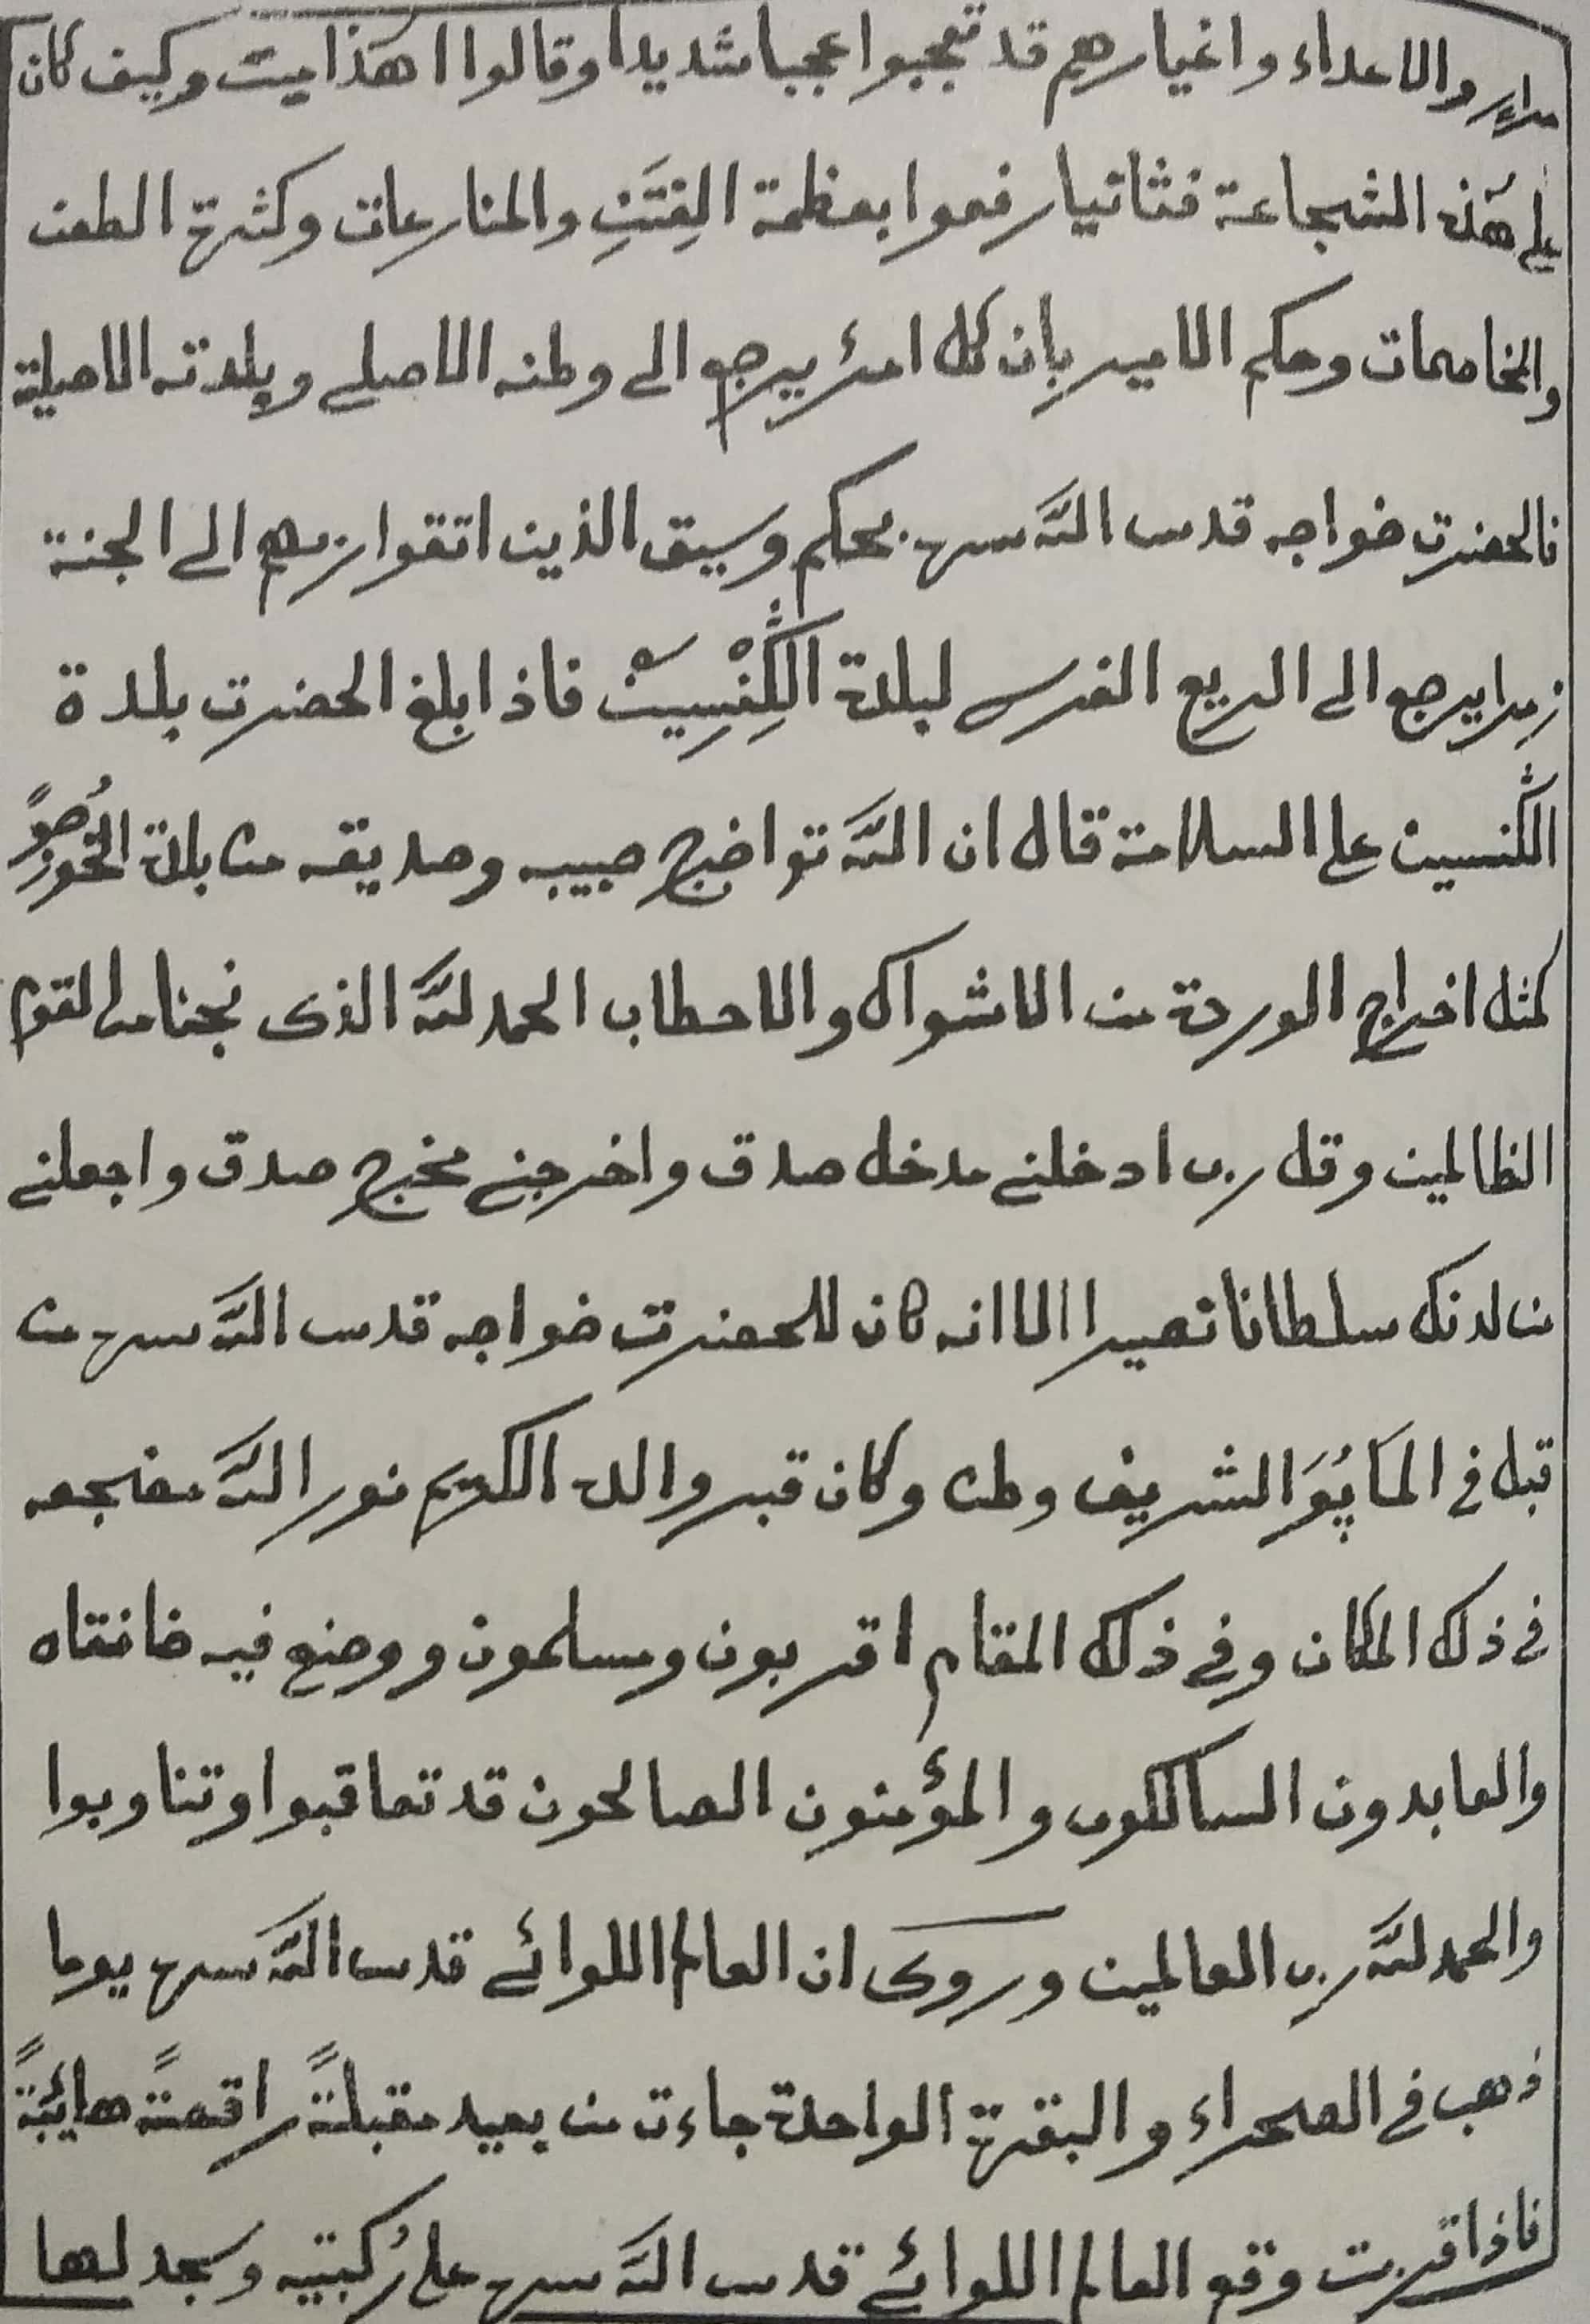 والاعداء واغيارهم قد تعجبوا عجبا شديدا وقالوا اهذا ميت وكيف كان
على هذه الشجاعة فثانيا رفعوا بعظمة الفِتَنِ والمنازعات وكثرة الطعن
والمخاصمات وحكم الامير بان كل امرئ يرجع الى وطنه الاصلي وبلدته الاصلية
فالحضرت خواجه قدس الله سره بحكم وسيق الذين اتقوا ربهم الى الجنة
زمرا يرجع الى الربع الغربي لبلدة الكِنْسِيت فاذا بلغ الحضرت بلدة
الكنسيت على السلامة قال ان الله تو اخرج حبيبه وصديقه من بلدة
كمثل اخراج الوردة من الاشواك والاحطاب الحمد لله الذى نجنا من القوم
الظالمين وقل رب ادخلني مدخل صدق واخرجني مخرج صدق واجعلني
من لدنك سلطانا نصيرا الا انه كان للحضرت خواجه قدس الله سره من
قبل في الماپُوَ الشريف وطن وكان قبر والده الكريم نور الله مضجعه
في ذلك المكان وفي ذلك المقام اقربون ومسلمون ووضع فيه خانقاه
والعابدون السالكون والمؤمنون الصالحون قد تعاقبوا وتناوبوا
والحمد لله رب العالمين وروى ان العالم اللوائي قدس الله سره يوما
ذهب في الصحراء والبقرة الواحدة جاءت من بعيد مقبلةً راقصةً هائبةً
فاذا قربت وقع العالم اللوائي قدس الله سره على رُكبتيه وسجد لها